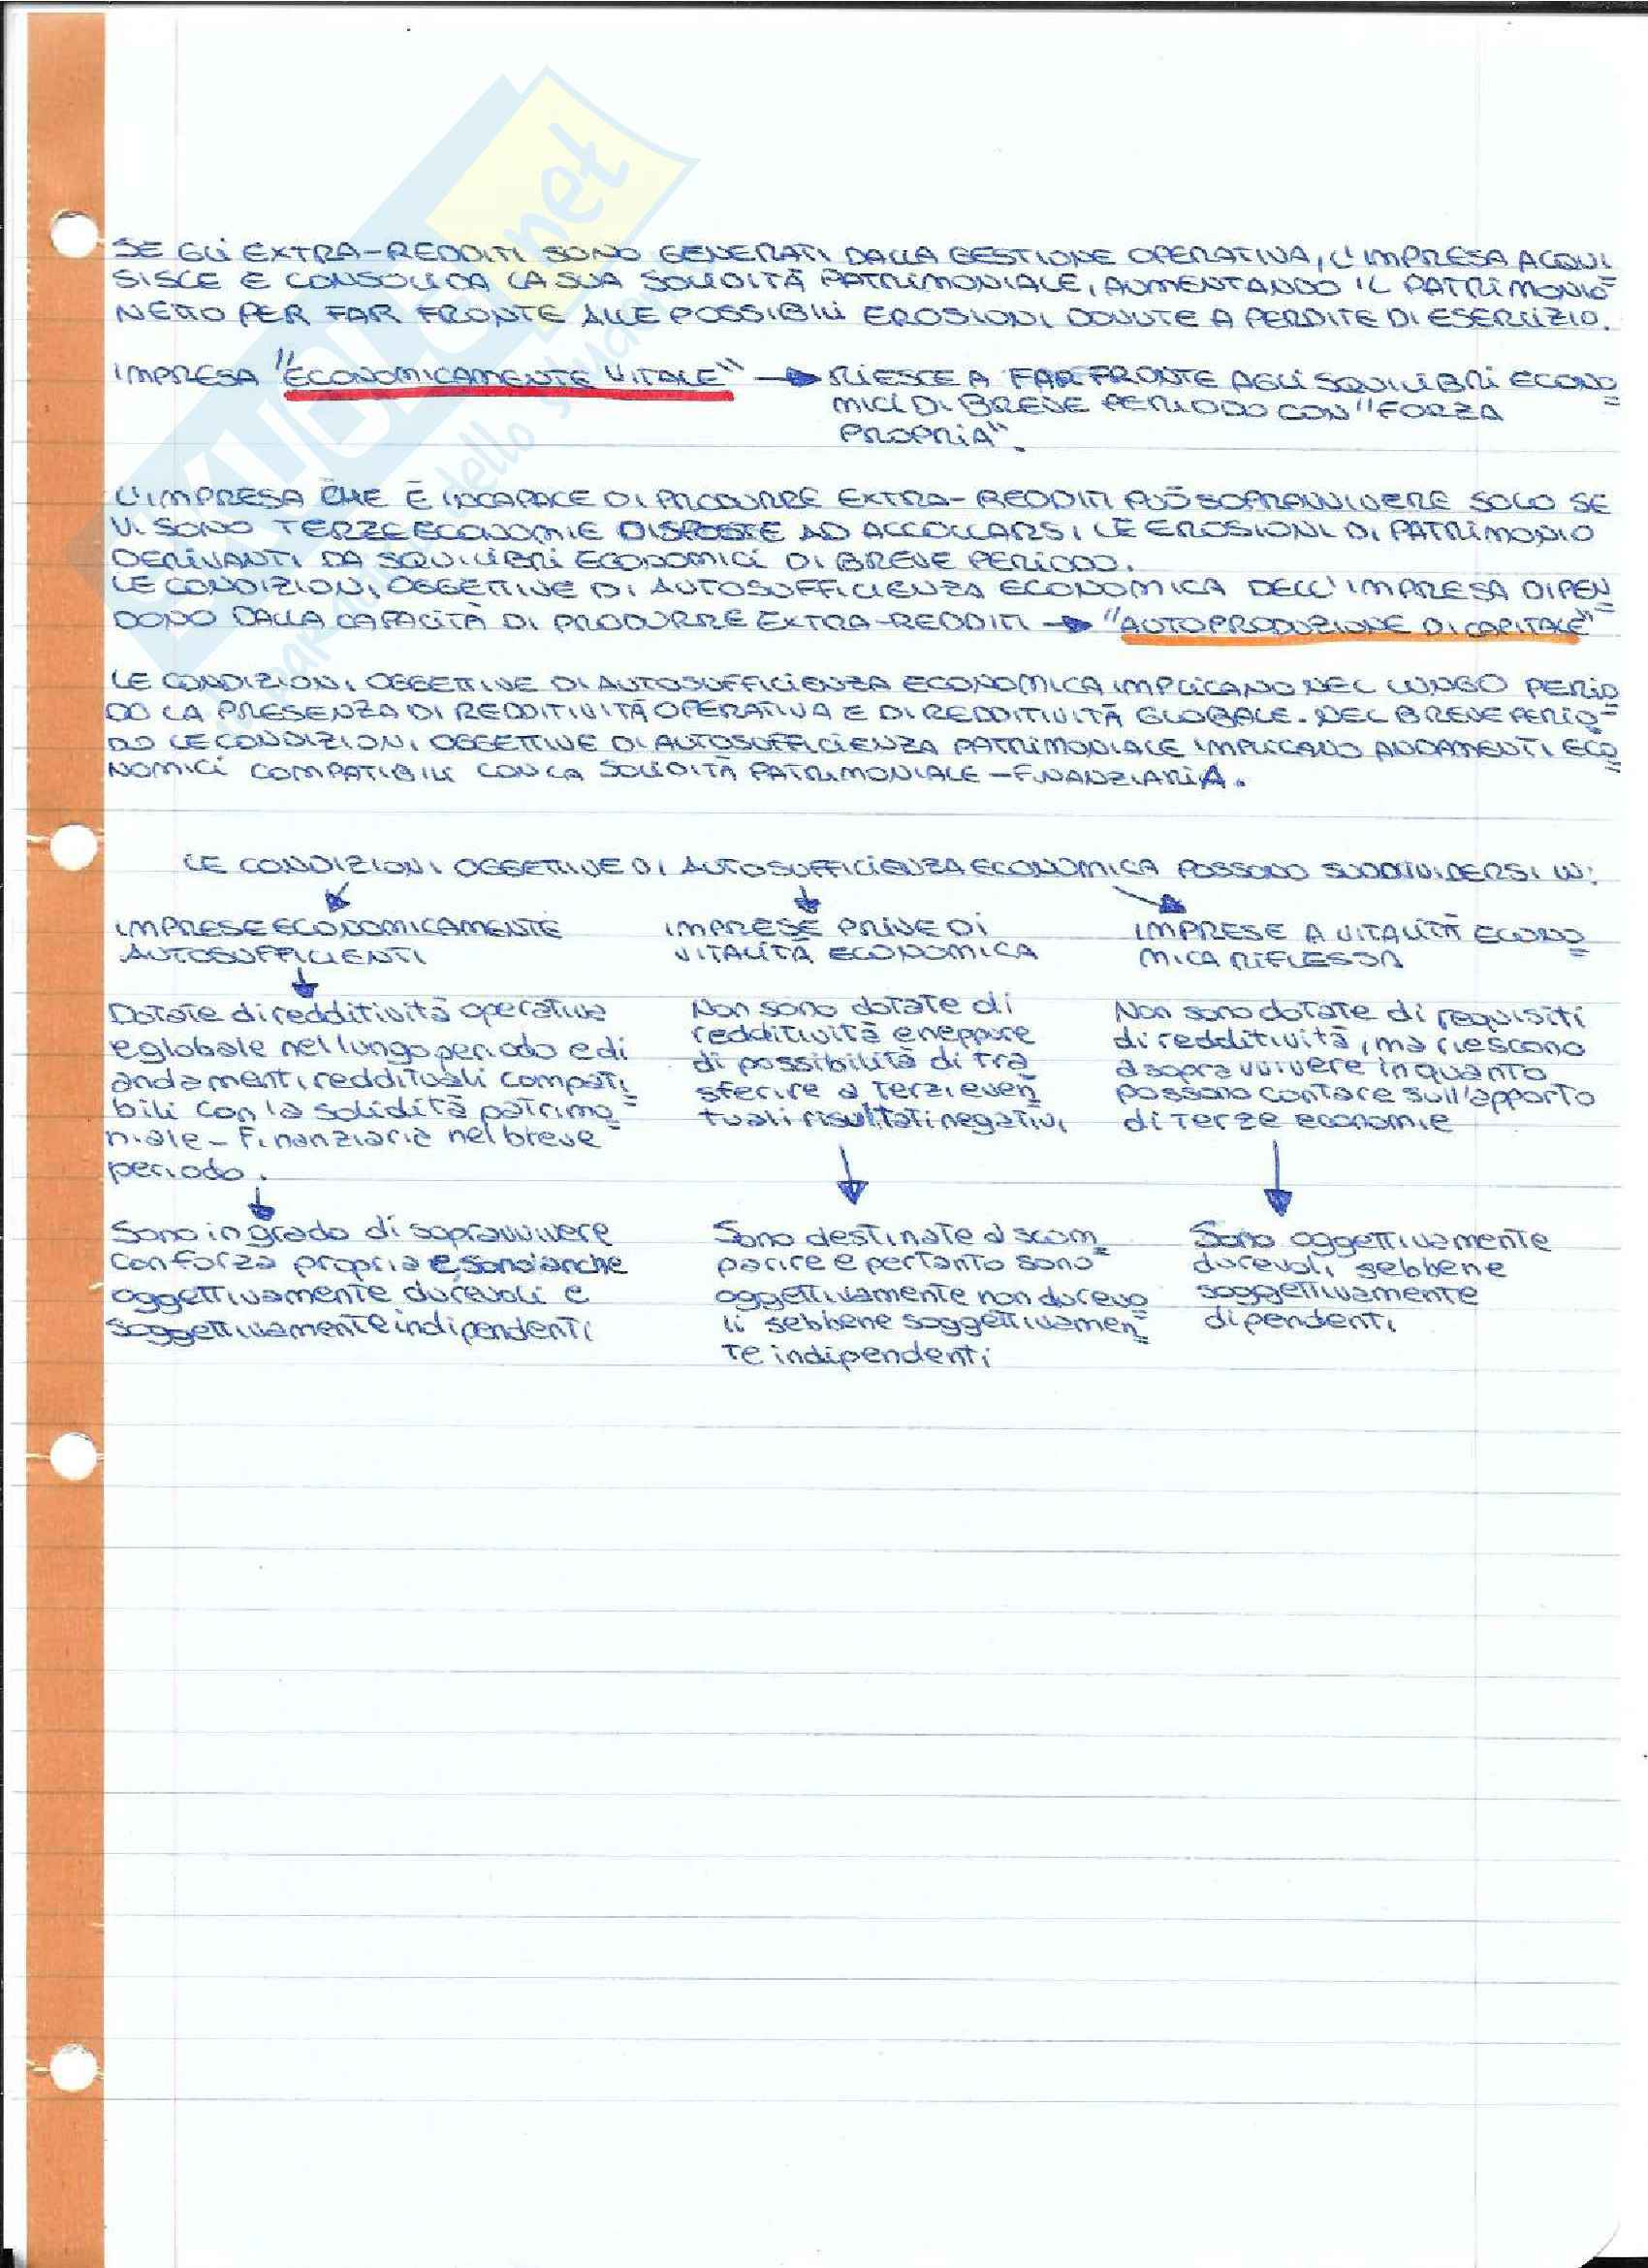 SE GLI EXTRA-REDDITI SONO GENERATI DALLA GESTIONE OPERATIVA, L'IMPRESA ACQUI
SISCE E CONSOLIDA LA SUA SOLIDITÀ PATRIMONIALE, AUMENTANDO IL PATRIMONIO
NETTO PER FAR FRONTE ALLE POSSIBILI EROSIONI DOVUTE A PERDITE DI ESERCIZIO.
IMPRESA "ECONOMICAMENTE VITALE" → RIESCE A FAR FRONTE AGLI SQUILIBRI ECONO=
MICI DI BREVE PERIODO CON "FORZA
PROPRIA".
L'IMPRESA CHE È INCAPACE DI PRODURRE EXTRA-REDDITI PUÒ SOPRAVVIVERE SOLO SE
VI SONO TERZE ECONOMIE DISPOSTE AD ACCOLLARSI LE EROSIONI DI PATRIMONIO
DERIVANTI DA SQUILIBRI ECONOMICI DI BREVE PERIODO.
LE CONDIZIONI OGGETTIVE DI AUTOSUFFICIENZA ECONOMICA DELL'IMPRESA DIPEN=
DONO DALLA CAPACITÀ DI PRODURRE EXTRA-REDDITI → "AUTOPRODUZIONE DI CAPITALE"
LE CONDIZIONI OGGETTIVE DI AUTOSUFFICIENZA ECONOMICA IMPLICANO NEL LUNGO PERIO=
DO LA PRESENZA DI REDDITIVITÀ OPERATIVA E DI REDDITIVITÀ GLOBALE. NEL BREVE PERIO=
DO LE CONDIZIONI OGGETTIVE DI AUTOSUFFICIENZA PATRIMONIALE IMPLICANO ANDAMENTI ECO=
NOMICI COMPATIBILI CON LA SOLIDITÀ PATRIMONIALE-FINANZIARIA.
LE CONDIZIONI OGGETTIVE DI AUTOSUFFICIENZA ECONOMICA POSSONO SUDDIVIDERSI IN:
IMPRESE ECONOMICAMENTE
AUTOSUFFICIENTI
Dotate di redditività operativa
e globale nel lungo periodo e di
andamenti reddituali compati
bili con la solidità patrimo=
niale - finanziaria nel breve
periodo.
Sono in grado di sopravvivere
con forza propria e sono anche
oggettivamente durevoli e
soggettivamente indipendenti
IMPRESE PRIVE DI
VITALITÀ ECONOMICA
Non sono dotate di
redditività e neppure
di possibilità di tra
sferire a terzi even=
tuali risultati negativi
Sono destinate a scom=
parire e pertanto sono
oggettivamente non durevo=
li sebbene soggettivamen=
te indipendenti
IMPRESE A VITALITÀ ECONO=
MICA RIFLESSA
Non sono dotate di requisiti
di redditività, ma riescono
a sopravvivere in quanto
possono contare sull'apporto
di terze economie
Sono oggettivamente
durevoli sebbene
soggettivamente
dipendenti
.net